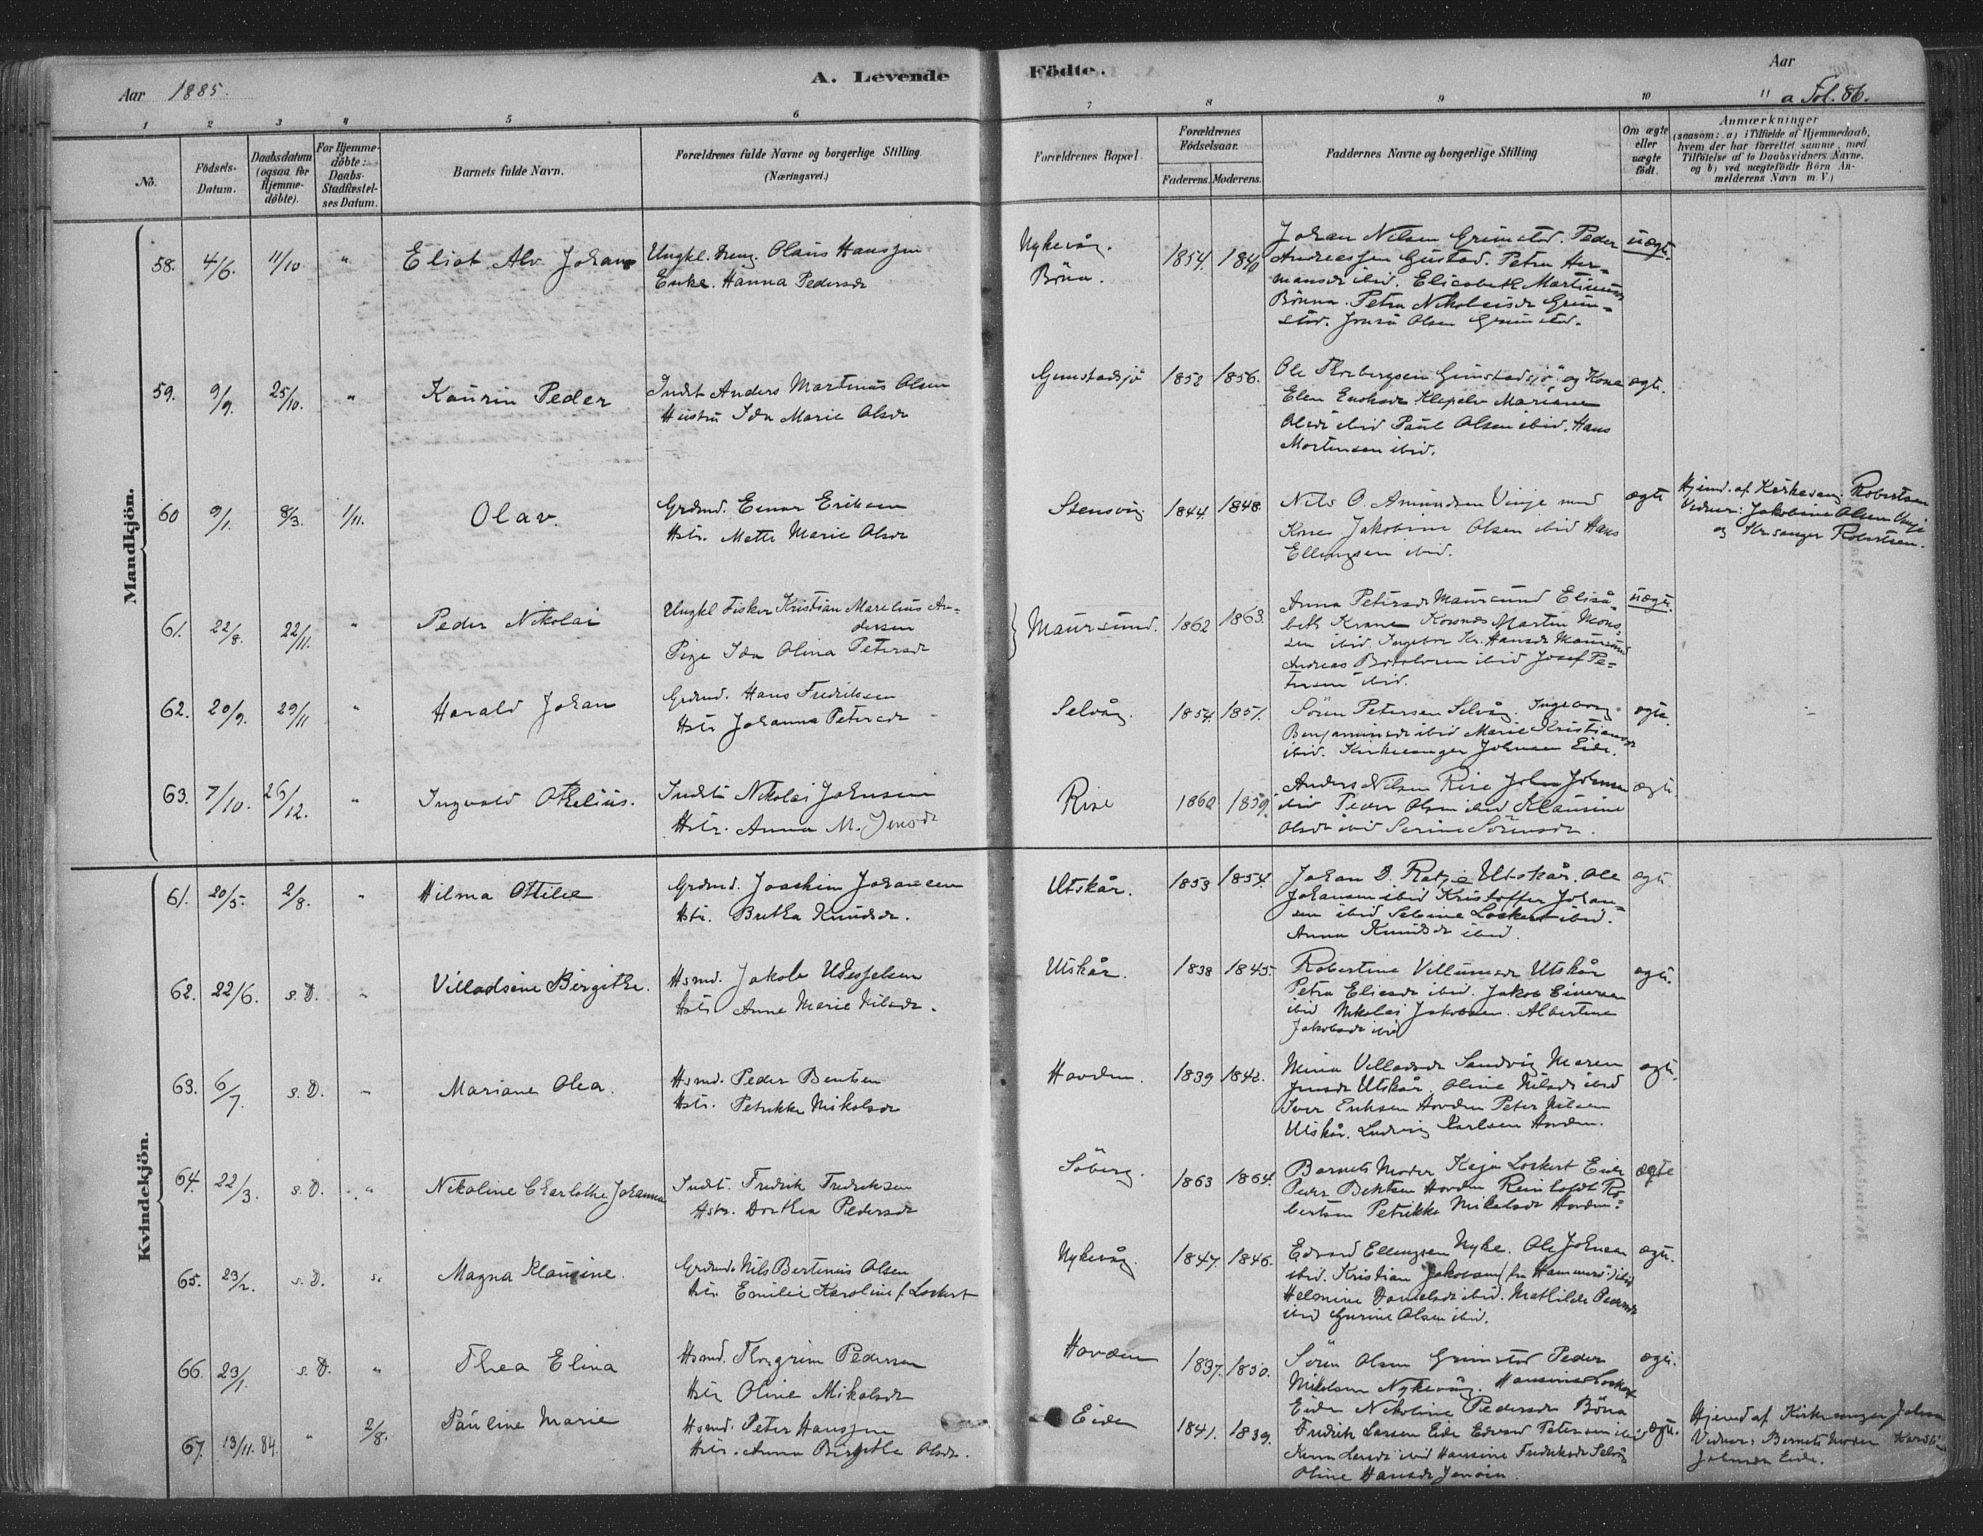 Aar 1885.
A. Levende
Födte.
Aar
a Fol. 86.
1 2 3 4 5 6 7 8 9 10 11
No.
Födsels-Datum.
Daabsdatum (ogsaa for Hjemmedöbte).
For Hjemmedöbte: Daabs-Stadfæstelses Datum.
Barnets fulde Navn.
Forældrenes fulde Navne og borgerlige Stilling. (Næringsvei.)
Forældrenes Bopæl.
Forældrenes Födselsaar.
Faderens. Moderens.
Faddernes Navne og borgerlige Stilling
Om ægte eller uægte födt.
Anmærkninger
(saasom: a) i Tilfælde af Hjemmedaab,
hvem der har forrettet samme, med
Tilföielse af to Daabsvidners Navne,
og b) ved uægtefödte Börn An-
melderens Navn m. V.)
Mandkjön.
58. 4/6. 11/10 " Eliot Alv Johan
Ungkl. Olaus Hanssen
Enke. Hanna Pedersdr
Nykvåg.
Böna.
1854. 1840
Johan Nilsen Grimstad. Peder
Andreassen Gustad. Petra Her-
mansdr ibid. Elisabeth Martinus
Bönna. Petra Nikolaisdr Grim-
stad. Olsen Grimstad.
uægt.
59. 9/9. 25/10. " Kaurin Peder
Indst Anders Martinus Olsen
Hustru Ida Marie Olsdr
Grimstadsjö 1852 1856.
Ole Thorbergsen Grimstadsjö og Kone
Elen Enoksdr Klepelv Mariane
Olsdr ibid Paul Olsen ibid. Hans
Mortensen ibid.
ægt.
60 9/1. 8/3. 1/11. Olav.
Grdmd. Einar Eriksen
Hstr. Mette Marie Olsdr
Stensvig 1844. 1848
Nils O. Amundsen Vinje med
Kone Jakobine Olsen ibid Hans
Ellingsen ibid.
ægte
Hjemd. af Kirkesang. Robertsen
Vidner: Jakobine Olsen Vinje
og Kr.sanger Robertsen.
61. 22/8. 22/11. " Peder Nikolai
Ungkl Fisker Kristian Marelius An-
dersen
Pige Ida Olina Petersdr
Maursund. 1862 1863.
Anna Petersdr Maursund Elisa-
beth Krane Kornes Martin Mons-
sen ibid. Ingebor Kr. Hansdr Maursund
Andreas ibid Josef Pe-
tersen ibid.
uægt.
62. 20/9. 29/11 " Harald Johan
Grdmd. Hans Fredriksen
Hstr Johanna Petersdr
Selvåg. 1854. 1851.
Sören Petersen Selvåg. Ingeborg
Benjaminsdr ibid Marie Kristiansdr
ibid. Kirkesanger Johnsen Eide.
ægte.
63. 7/10. 26/12. " Ingvald Othelius.
Indst Nikolai Johnsen
Hstr. Anna M. Jensdr
Rise 1862 1859.
Anders Nilsen Rise John Johnsen
ibid Peder Olsen ibid Klausine
Olsdr ibid Serine Sörensdr.
ægte.
Kvindekjön.
61. 20/5. 2/8. " Hilma Ottilie
Grdmd. Joachim Johansen
Hstr. Bertha Knudsdr.
Utskår. 1853 1854.
Johan D. Rotje Utskår. Ole
Johansen ibid Kristoffer Johan-
sen ibid Selvine Lockert ibid.
Anna Knudsdr ibid.
ægt.
62. 22/6. s.D. " Villadsine Birgithe.
Hsmd. Jakob
Hstr Anne Marie Nilsdr.
Utskår. 1838 1845.
Robertine Villumsdr Utskår
Petra Eliasdr ibid. Jakob Einersen
ibid Nikolai Jakobsen. Albertine
Jakobsdr ibid
ægt.
63. 6/7. s.D. " Mariane Olea.
Hsmd. Peder Bentsen
Hstr. Petrikke Nikolsdr
Hovden. 1839 1842.
Mina Villadsdr Sandvig Maren
Jensdr Utskår. Oline Nilsdr ibid
Iver Eriksen Hovden Peter Nilsen
Utskår. Ludvig Karlsen Hovden.
ægt.
64. 22/3. s.D. " Nikoline Charlothe Johanna
Indst. Fredrik Fredriksen
Hstr. Dorthea Pedersdr
Söberg. 1863 1864.
Barnets Moder Kaja Lockert Eide
Peder Bentsen Hovden Reinholdt Ro-
bertsen Petrikke Nikolsdr Hovden.
ægte
65. 23/2. s.D. " Magna Klausine.
Grdmd Nils Bertinus Olsen
Hstr Emilie Karoline f. Lockert
Nykvåg. 1847. 1846.
Edvard Ellingsen Nyke. Ole Johnsen
ibid. Kristian Jakobsen (fra Hammerö) ibid
Helmine Danielsdr ibid. Mathilde Pedersdr
ibid Gurine Olsen ibid.
ægt.
66. 23/1. s.D. " Thea Elina
Hsmd. Thorgrim Pedersen
Hstr Oline Mikalsdr
Hovden 1837. 1850.
Sören Olsen Grimstad Peder
Nikolsen Nykvåg. Hansine Lockert
Eide Nikoline Pedersdr Böna
ægt.
67. 13/11. 84. " 2/8. Pauline Marie
Hsmd. Peter Hanssen
Hstr. Anna Birgithe Olsdr.
Eide 1841. 1839.
Fredrik Larsen Eide Edvard Petersen ibid
Larsdr ibid Hansine Fredriksdr Selvåg
Oline Hansdr
ægt.
Hjemd af Kirkesanger Johnsen
Vidner: Barnets Moder
Johnsen Eide.